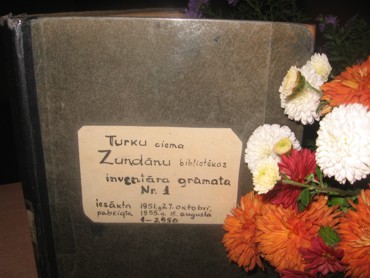 Turku ciema
Zundānu bibliotēkas
inventāra grāmata
Nr. 1
iesākta 1951.g. 27. oktobrī,
pabeigta 1955.g. 8. augustā
1-2550